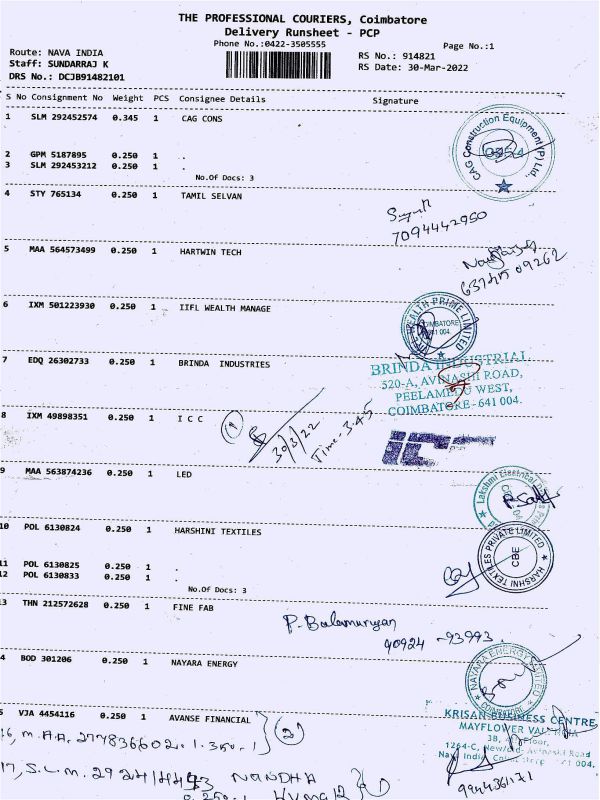 THE PROFESSIONAL COURIERS, Coimbatore
Delivery Runsheet - PCP
Phone No.:0422-3505555
Page No.:1
Route: NAVA INDIA
Staff: SUNDARRAJ K
DRS No.: DCJB91482101
RS No.: 914821
RS Date: 30-Mar-2022
S No Consignment No Weight PCS Consignee Details Signature
1 SLM 292452574 0.345 1 CAG CONS
CAG Construction Equipment (P) Ltd.
2 GPM 5187895 0.250 1 .
3 SLM 292453212 0.250 1 .
No.Of Docs: 3
4 STY 765134 0.250 1 TAMIL SELVAN
7094442950
5 MAA 564573499 0.250 1 HARTWIN TECH
63745 09262
6 IXM 501223930 0.250 1 IIFL WEALTH MANAGE
WEALTH PRIME LIMITED
COIMBATORE
641 004.
7 EDQ 26302733 0.250 1 BRINDA INDUSTRIES
BRINDA INDUSTRIAL
520-A, AVINASHI ROAD,
PEELAMEDU WEST,
COIMBATORE - 641 004.
8 IXM 49898351 0.250 1 I C C
1
30/3/22
Time - 3.45
ICC
9 MAA 563874236 0.250 1 LED
Lakshmi Electrical
10 POL 6130824 0.250 1 HARSHINI TEXTILES
HARSHNI TEXTILES PRIVATE LIMITED
CBE
11 POL 6130825 0.250 1 .
12 POL 6130833 0.250 1 .
No.Of Docs: 3
13 THN 212572628 0.250 1 FINE FAB
P. Balamurugan
90924 - 93993
4 BOD 301206 0.250 1 NAYARA ENERGY
NAYARA ENERGY LIMITED
COIMBATORE
5 VJA 4454116 0.250 1 AVANSE FINANCIAL
2
KRISAN BUSINESS CENTRE
MAYFLOWER VALENCIA
3B, Floor,
1264-C, New/old- Avinashi Road
Nava India, Coimbatore
9944361171
16, M.A.A. 277836602. 1. 350. 1
17, S.L.M. 292414443 NANDHA
0.250. 1 KUMAR